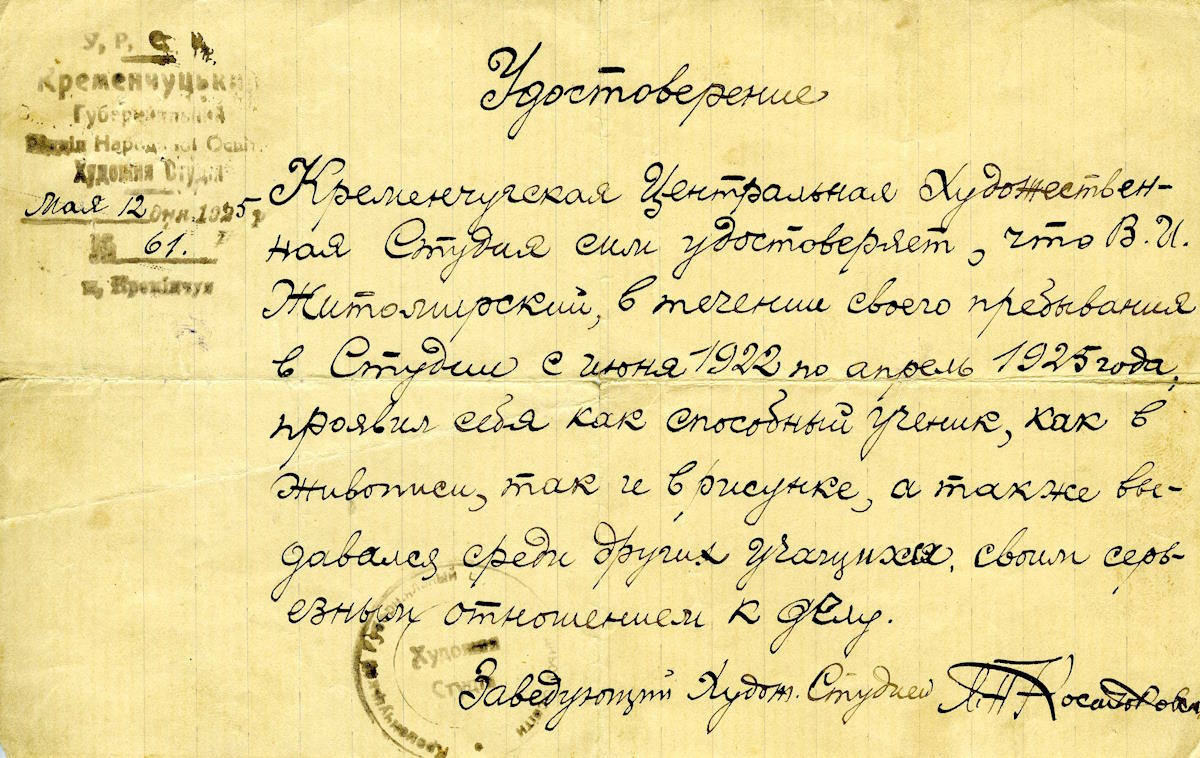 У, Р, С
Кременчуцький
Губерніальний
Відділ Народної Освіти
Художня Студія
Мая 12 дня 1925 р
№ 61.
м, Кремінчук
Удостоверение
Кременчугская Центральная Художествен-
ная Студия сим удостоверяет, что В. И.
Житомирский, в течении своего пребывания
в Студии с июня 1922 по апрель 1925 года,
проявил себя как способный ученик, как в
живописи, так и в рисунке, а также вы-
давался среди других учащихся, своим серь-
езным отношением к делу.
Художня
Заведующий Худож. Студией